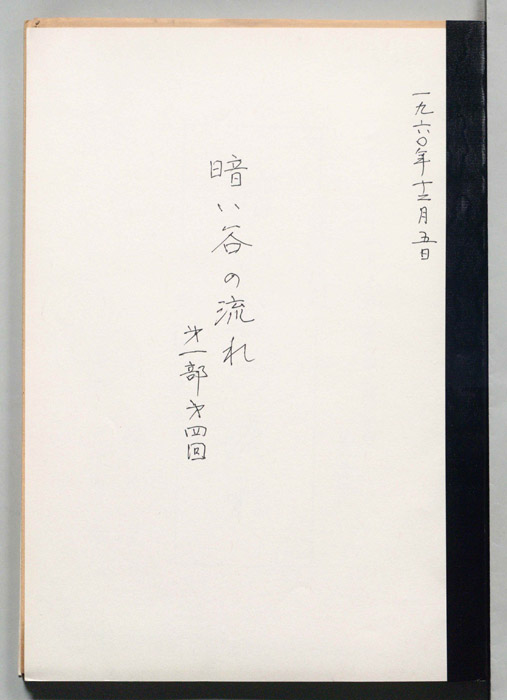 一九六〇年十二月五日
暗い谷の流れ
㐧一部㐧四回